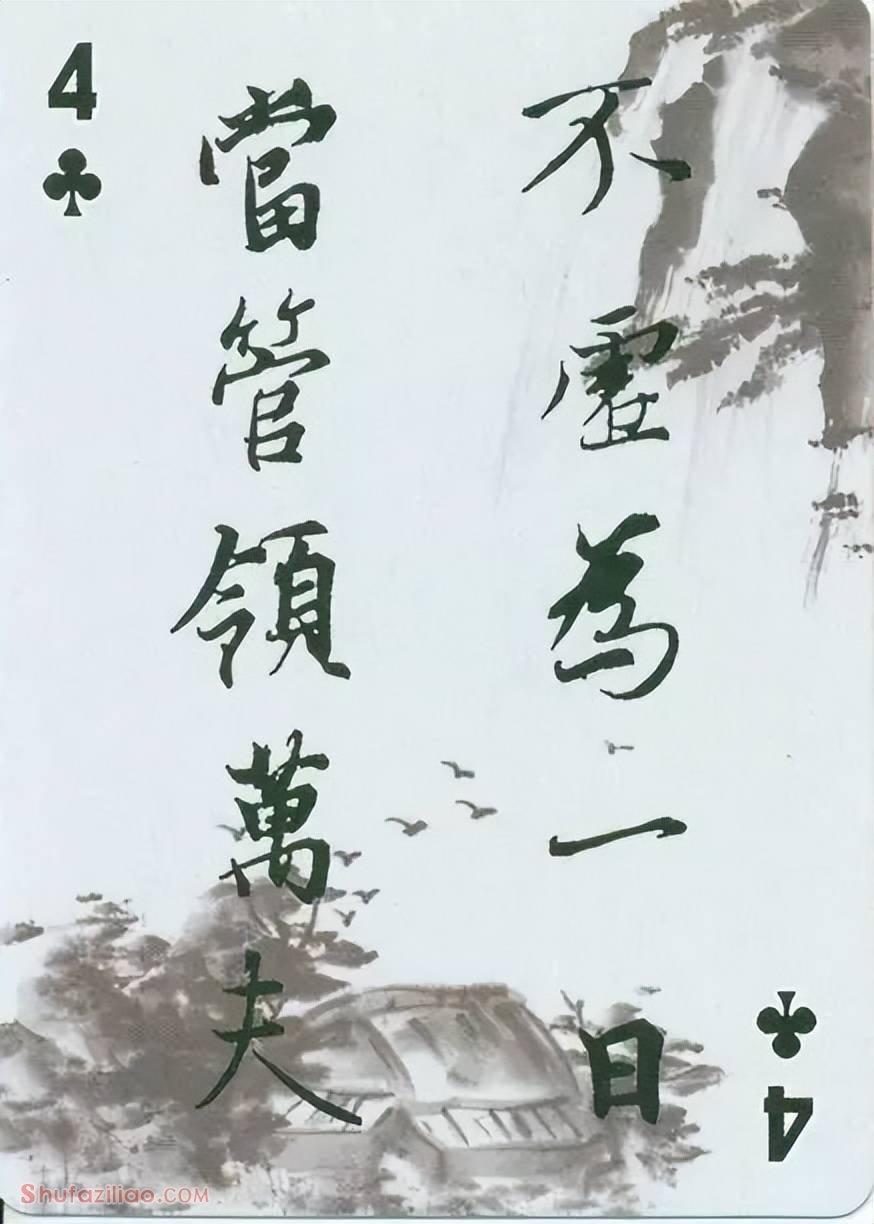 4
不虛為一日
當管領萬夫
4
Shufaziliao.com